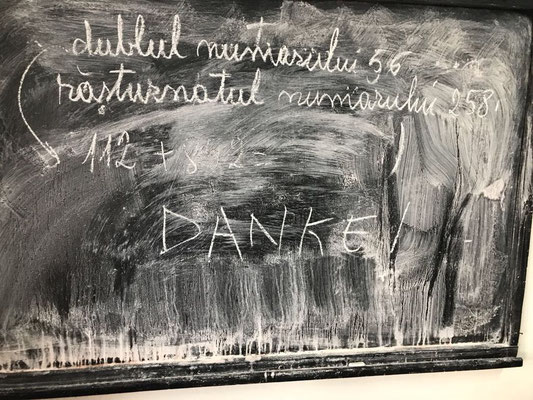 dublul numărului 56
răsturnatul numărului 258
112 +
DANKE!